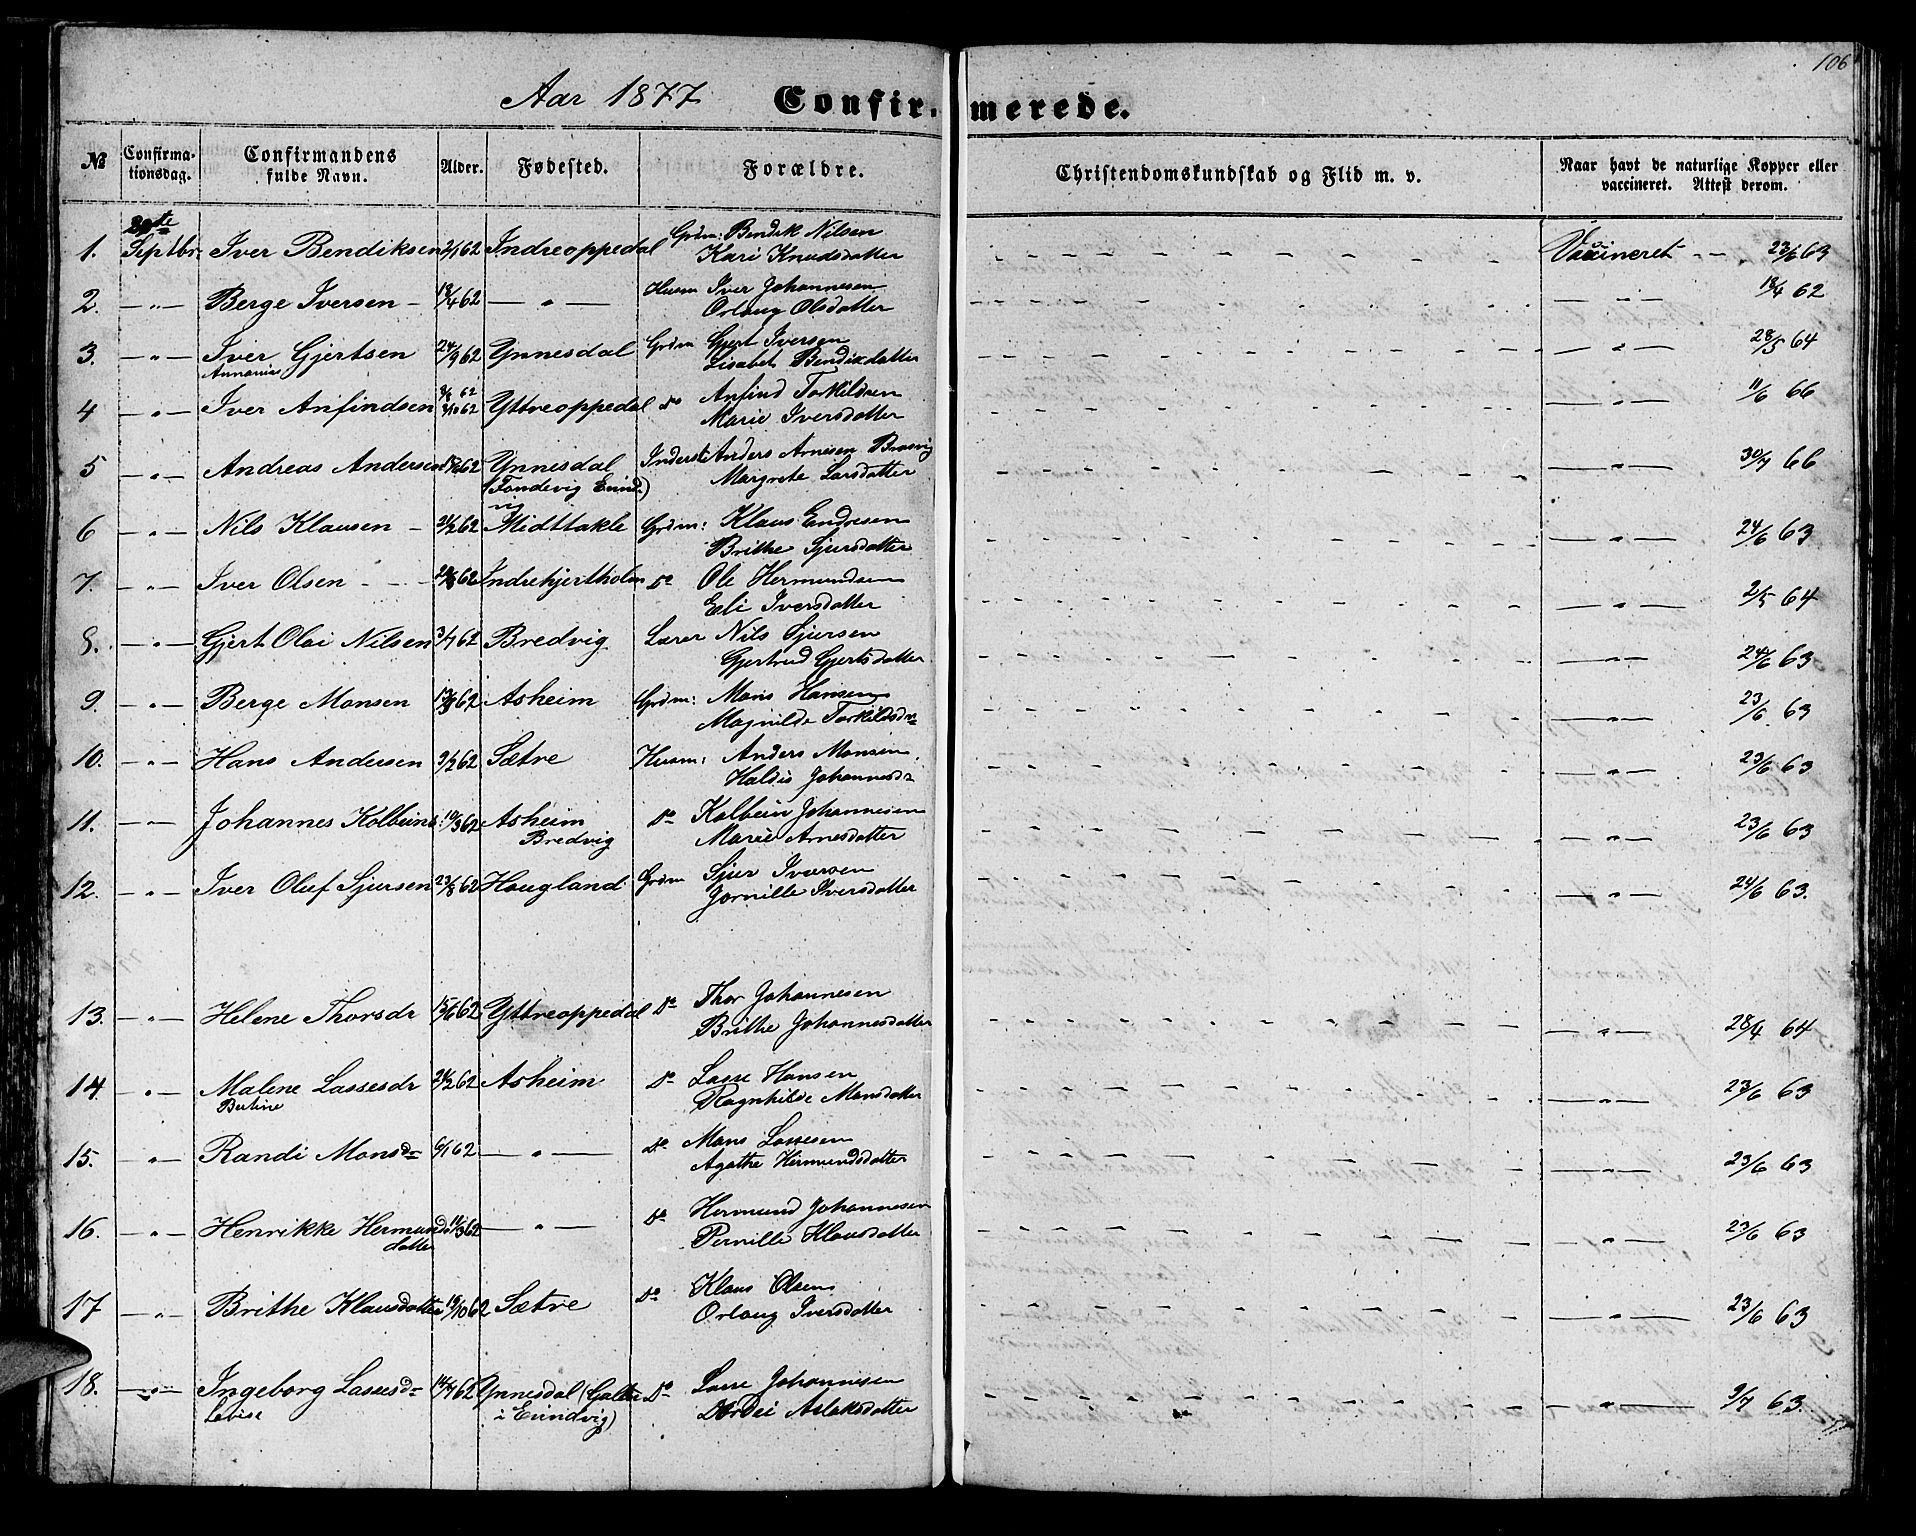 106
Aar 1877 Confirmerede.
№ Confirmationsdag. Confirmandens fulde Navn. Alder. Fødested. Forældre. Christendomskundskab og Flid m. v. Naar havt de naturlige Kopper eller vaccineret. Attest derom.
1. Septbr. Iver Bendiksen Indreoppedal Grdm: Bendik Nilsen Vaccineret 23/6 63
Kari Knudsdatter
2. — " — Berge Iversen 18/4 62 — " — Husm Iver Johannesen — " — 18/4 62
Orlaug Olsdatter
3. — " — Iver Gjertsen 24/9 62 Ynnesdal Grdm Gjert Iversen — " — 28/5 64
Lisabet Bendixdatter
Annanias
4 — " — Iver Anfindsen Yttreoppedal do Anfind Torkildsen — " — 11/6 66
Marie Iversdatter
5 — " — Andreas Andersen Ynnesdal Inderst Anders Arnesen — " — 30/7 66
Margrete Larsdatter
6 — " — Nils Klausen Midttakle Grdm: Klaus Endresen — " — 24/6 63
Brithe Sjursdatter
7. — " — Iver Olsen Indrehjertholm do Ole Hermundsen — " — 2/5 64
Eli Iversdatter
8. — " — Gjert Olai Nilsen 3/7 62 Bredvig Lærer Nils Sjursen — " — 24/6 63
Gjertrud Gjertsdatter
9. — " — Berge Monsen Asheim Grdm: Mons Hansen — " — 23/6 63
Magnilde Torkildsdr
10. — " — Hans Andersen 9/2 62 Sætre Husm: Anders Monsen — " — 23/6 63
Haldis Johannesdr
11. — " — Johannes Kolbeins 10/3 62 Asheim do Kolbein Johannesen — " — 23/6 63
Bredvig Marie Arnesdatter
12. — " — Iver Oluf Sjursen 23/8 62 Haugland Grdm Sjur Iversen — " — 24/6 63.
Jornille Iversdatter
13. — " — Helene Thorsdr 15/6 62 Yttreoppedal do Thor Johannesen — " — 28/4 64
Brithe Johannesdatter
14. — " — Malene Lassesdr 24/2 62 Asheim do Lasse Hansen — " — 23/6 63
Bertine Ragnhilde Monsdatter
15. — " — Randi Monsdr 6/1 62 — " — do Mons Lassesen — " — 23/6 63
Agathe Hermundsdatter
16. — " — Henrikke Hermunds 11/3 62 — " — do Hermund Johannesen — " — 23/6 63
datter Pernille Klausdatter
17 — " — Brithe Klausdatter 19/10 62 Sætre do Klaus Olsen — " — 23/6 63
Orlaug Iversdatter
18. — " — Ingeborg Lassesdr 14/7 62 Ynnesdal do Lasse Johannesen — " — 9/7 63.
i Evindvig) Dordei Aslaksdatter